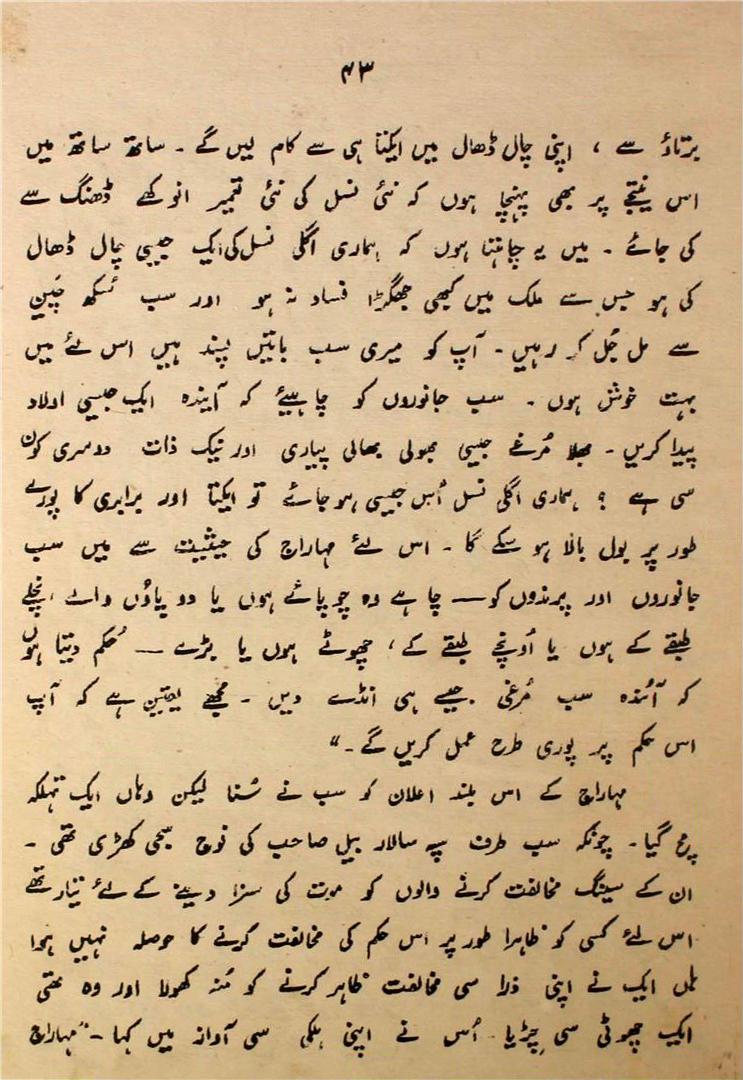 ۴۳
برتاؤ سے ، اپنی چال ڈھال میں ایکتا ہی سے کام لیں گے ۔ ساتھ ساتھ میں
اس نتیجے پر بھی پہنچا ہوں کہ نئی نسل کی نئی تعمیر انوکھے ڈھنگ سے
کی جائے ۔ میں یہ چاہتا ہوں کہ ہماری اگلی نسل کی ایک جیسی چال ڈھال
کی ہو جس سے ملک میں کبھی جھگڑا فساد نہ ہو اور سب سُکھ چَین
سے مل جُل کر رہیں ۔ آپ کو میری سب باتیں پسند ہیں اس لئے میں
بہت خوش ہوں ۔ سب جانوروں کو چاہیئے کہ آیندہ ایک جیسی اولاد
پیدا کریں ۔ بھلا مُرغے جیسی بھولی بھالی پیاری اور نیک ذات دوسری کون
سی ہے ؟ ہماری اگلی نسل اُس جیسی ہو جائے تو ایکتا اور برابری کا پورے
طور پر بول بالا ہو سکے گا ۔ اس لئے مہاراج کی حیثیت سے میں سب
جانوروں اور پرندوں کو — چاہے وہ چوپائے ہوں یا دو پاؤں والے ، نچلے
طبقے کے ہوں یا اُونچے طبقے کے ، چھوٹے ہوں یا بڑے — حُکم دیتا ہوں
کہ آئندہ سب مُرغی جیسے ہی انڈے دیں ۔ مجھے یقین ہے کہ آپ
اس حکم پر پوری طرح عمل کریں گے ۔"
مہاراج کے اس بلند اعلان کو سب نے سُنا لیکن وہاں ایک تہلکہ
مچ گیا ۔ چونکہ سب طرف سپہ سالار بیل صاحب کی فوج سجی کھڑی تھی ۔
ان کے سینگ مخالفت کرنے والوں کو موت کی سزا دینے کے لئے تیار تھے
اس لئے کسی کو ظاہرا طور پر اس حکم کی مخالفت کرنے کا حوصلہ نہیں ہوا
ہاں ایک نے اپنی ذرا سی مخالفت ظاہر کرنے کو مُنہ کھولا اور وہ تھی
ایک چھوٹی سی چِڑیا ۔ اُس نے اپنی ہلکی سی آواز میں کہا ۔ "مہاراج